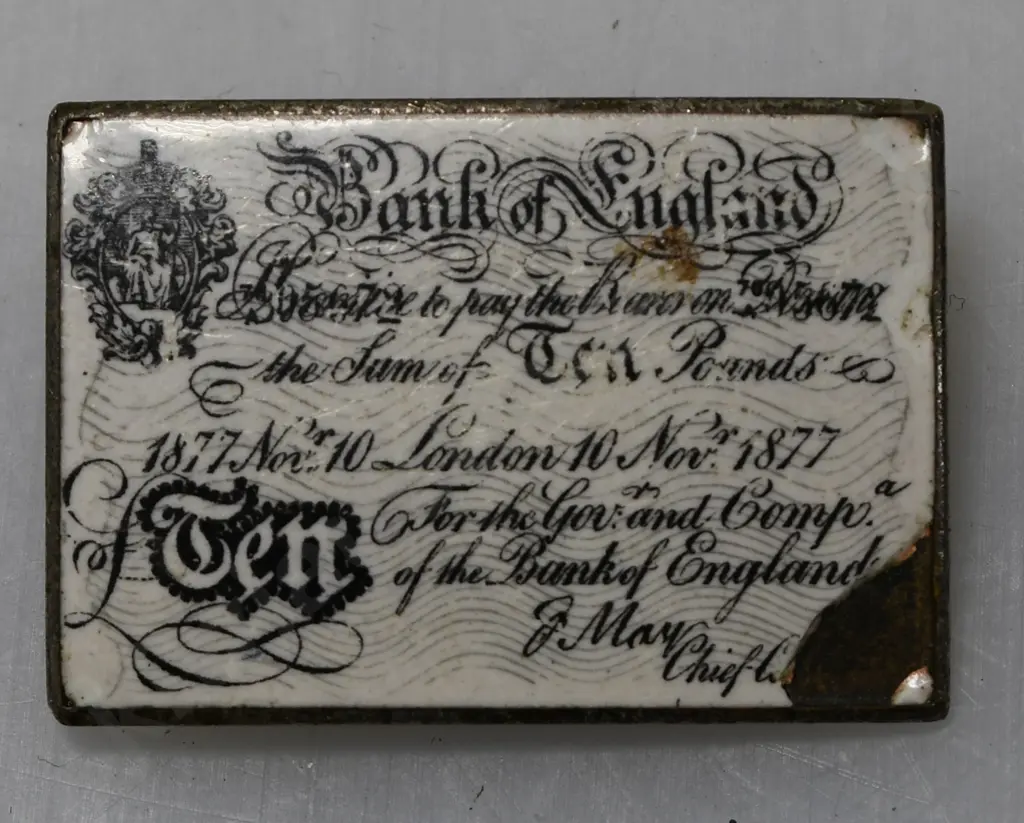 Bank of England
to pay the Bearer on
the Sum of Ten Pounds
1877 Novr. 10 London 10 Novr. 1877
£Ten For the Govr. and Compa.
of the Bank of England
J May
Chief C